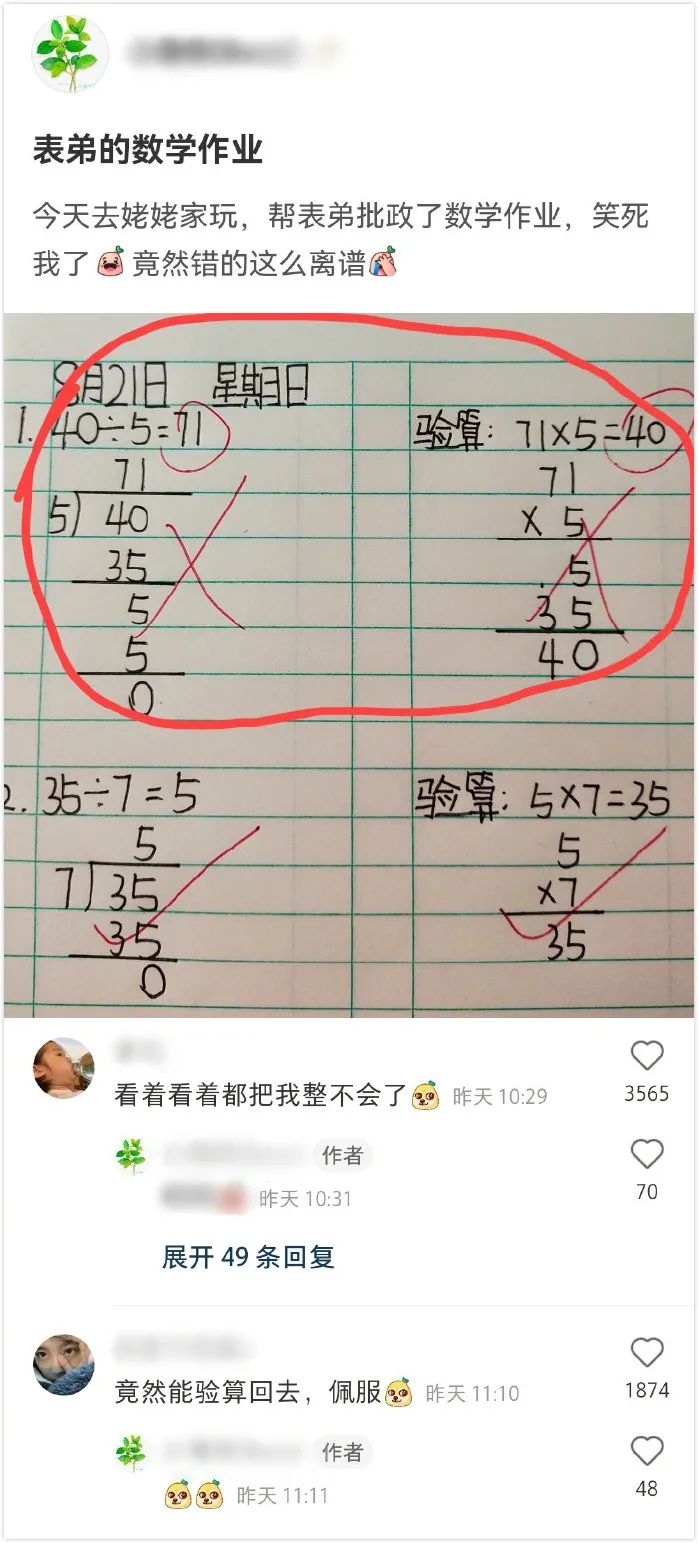 表弟的数学作业
今天去姥姥家玩，帮表弟批政了数学作业，笑死
我了竟然错的这么离谱
8月21日 星期3日
1. 40÷5=71
71
5) 40
35
5
5
0
验算: 71×5=40
71
× 5
5
35
40
2. 35÷7=5
5
7) 35
35
0
验算: 5×7=35
5
×7
35
看着看着都把我整不会了 昨天 10:29
3565
作者
昨天 10:31
70
展开 49 条回复
竟然能验算回去，佩服 昨天 11:10
1874
作者
昨天 11:11
48